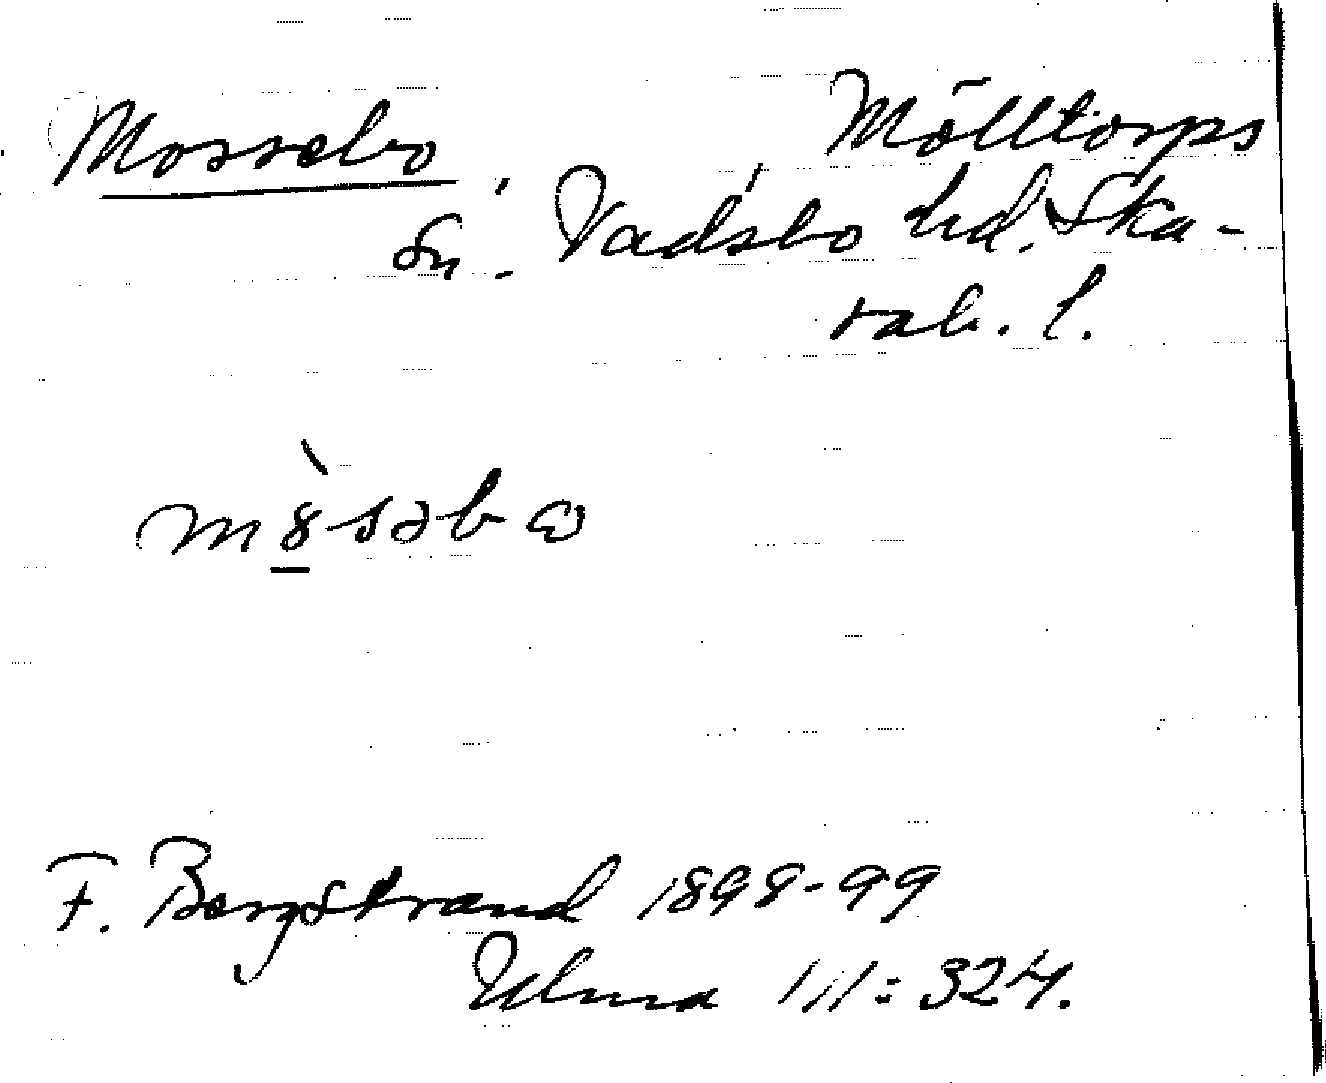 Mossebo, Mölltorps
Sn. Vadsbo hd. Ska-
rab. l.
F. Bergstrand 1898-99
Ulma 111:324.